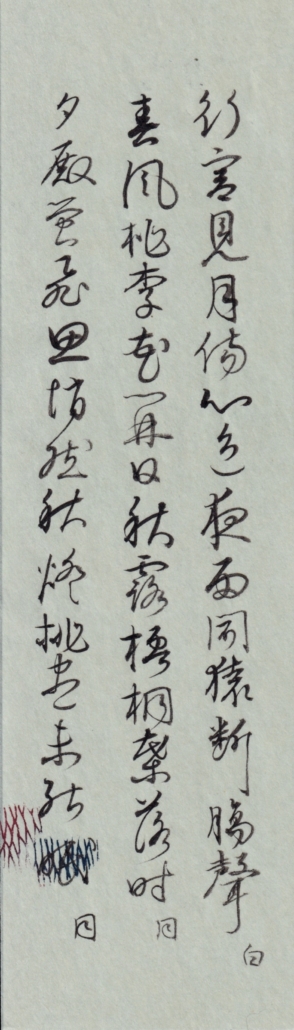 行宮見月傷心色夜雨聞猿断腸聲 白
春風桃李花開日秋露梧桐葉落時 同
夕殿蛍飛思悄然秋燈挑尽未能 同